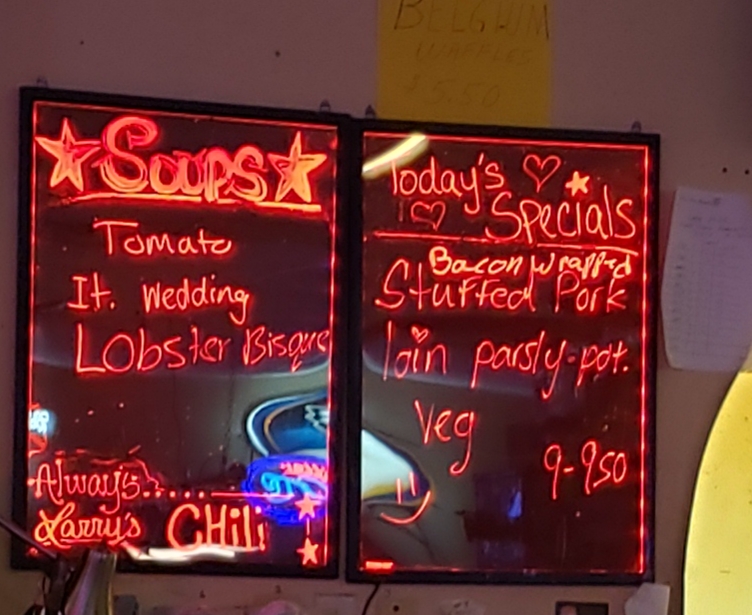 BELGIUM
WAFFLES
$5.50
Soups
Tomato
It. Wedding
Lobster Bisque
Always......
Larry's CHili
Today's
Specials
Bacon wrapped
Stuffed Pork
loin parsly-pot.
Veg
9-950